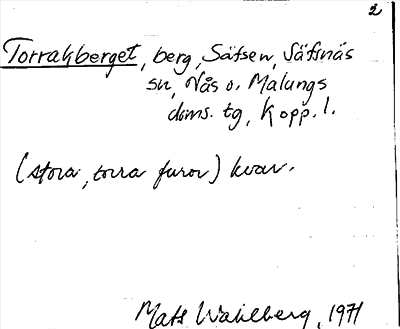 2
Torrakberget, berg, Säfsen, Säfsnäs
sn, Nås o. Malungs
doms. tg, Kopp. l.
(stora, torra furor) kvar.
Mats Wahlberg, 1971